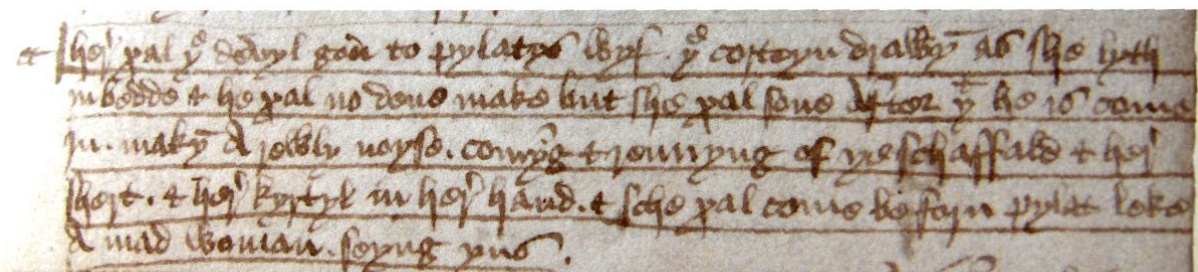 & her' xal þᵉ devyl gon to pylatys wyf . þᵉ corteyn drawȳ as she lyth
in bedde & he xal no dene make but she xal sone After þᵗ he is come
In . makȳ A rewly noyse . comyng & rennyng of þe schaffald & her'
shert . & her' kyrtyl in her' hand . & sche xal come beforn pylat leke
A mad woman . seyng þus .